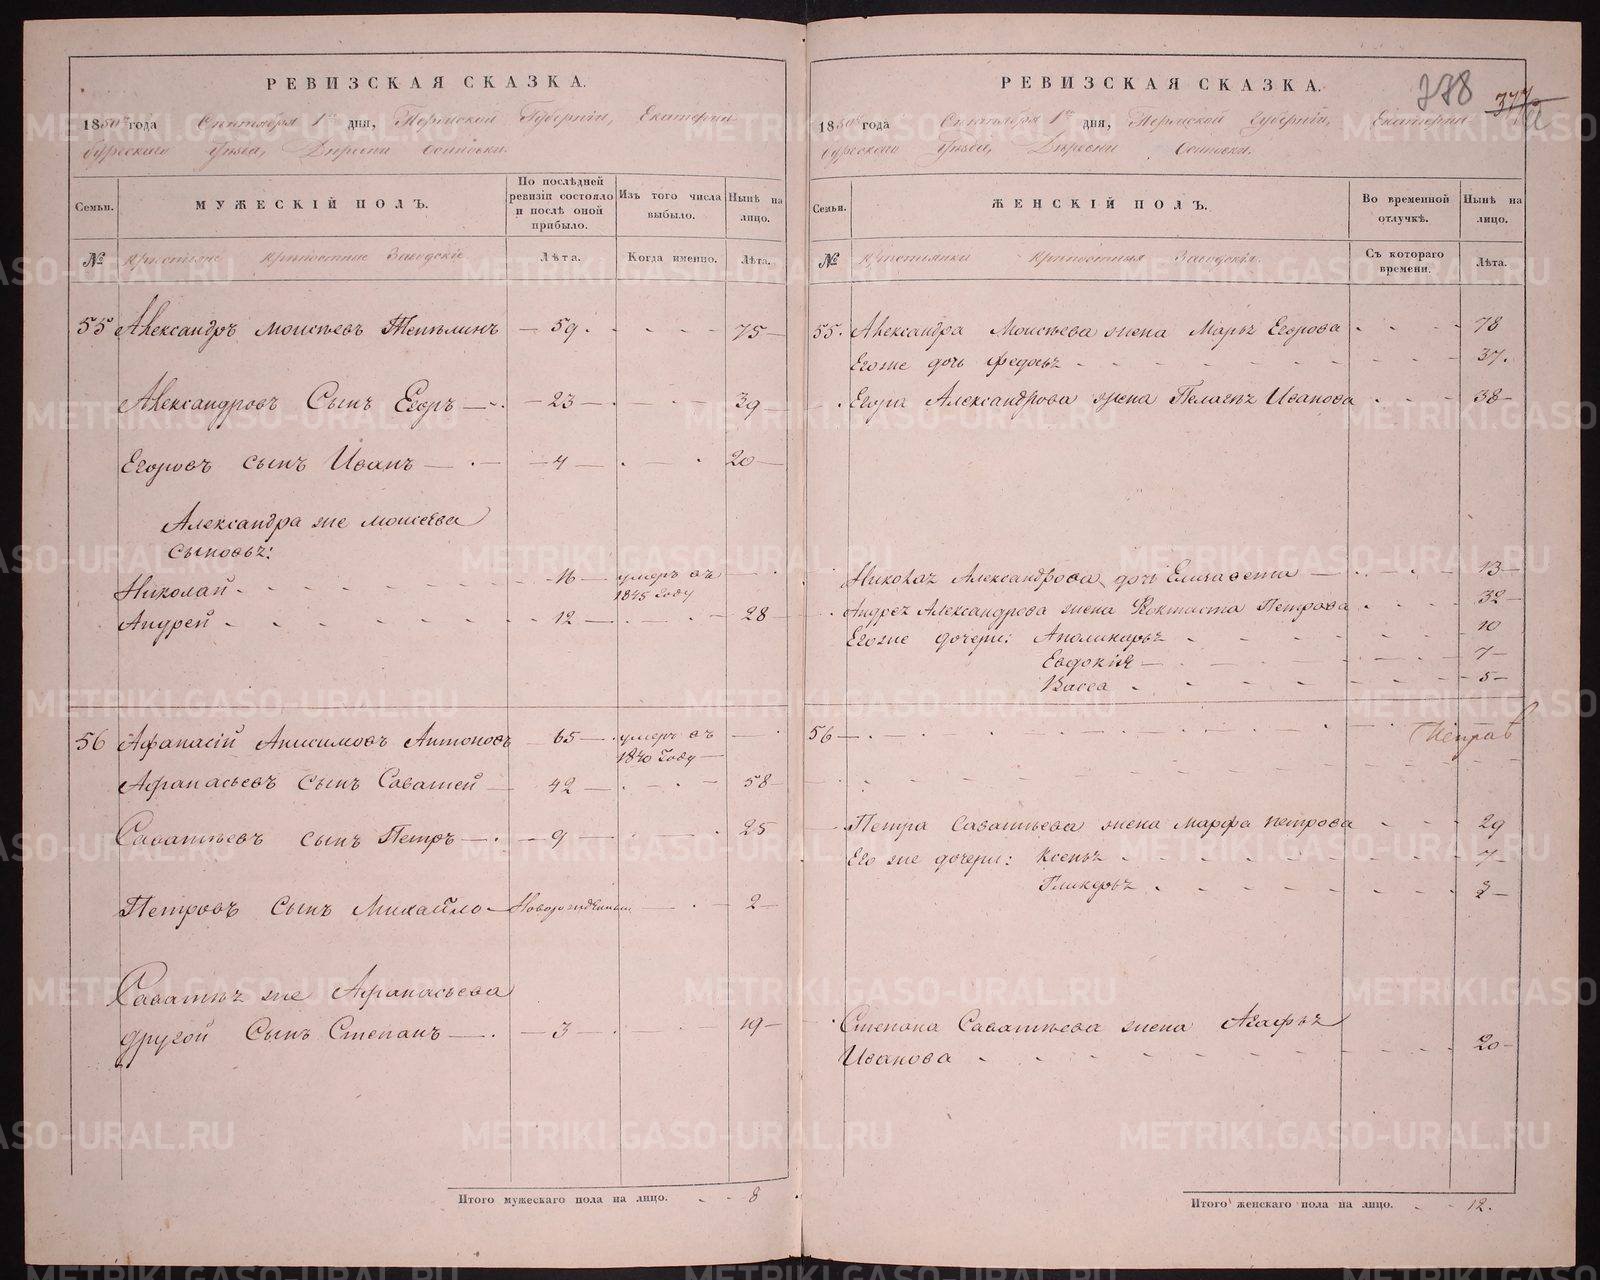 РЕВИЗСКАЯ СКАЗКА.
1850го года Сентября 1го дня, Пермской Губернiи, Екатерин
бургскаго Уѣзда, Деревни Осиновки.
Семьи.
МУЖЕСКIЙ ПОЛЪ.
По послѣдней ревизiи состояло и послѣ оной прибыло.
Изъ того числа выбыло.
Нынѣ на лицо.
№
Крестьяне крѣпостные Заводскiе
Лѣта.
Когда именно.
Лѣта.
55 Александръ Моисѣевъ — 59 75
Александровъ Сынъ Егоръ — 23 39
Егоровъ сынъ Иванъ — 4 20
Александра же Моисѣева
Сыновья:
Николай 16 умеръ въ 1845 году
Андрей 12 28
56 Афанасiй Анисимовъ Антоновъ 65 умеръ въ 1840 году
Афанасьевъ сынъ Саватей 42 58
Саватѣевъ сынъ Петръ — 9 25
Петровъ сынъ Михайло — Новорожденный 2
Саватѣя же Афанасьева
другой Сынъ Степанъ — 3 19
Итого мужескаго пола на лицо. 8
РЕВИЗСКАЯ СКАЗКА.
378
377
1850го года Сентября 1го дня, Пермской Губернiи, Екатерин
бургскаго Уѣзда, Деревни Осиновки.
Семьи.
ЖЕНСКIЙ ПОЛЪ.
Во временной отлучкѣ.
Нынѣ на лицо.
№
Крестьянки крѣпостныя Заводскiя.
Съ котораго времени.
Лѣта.
55. Александра Моисѣева жена Марья Егорова 78
Егоже дочь Федосья 37.
Егора Александрова жена Пелагея Иванова 38
Николая Александрова дочь Елизавета 13
Андрея Александрова жена Фоктиста Петрова 32
Егоже дочери: Аполинарья 10
Евдокiя 7
Васса 5
56
Петра Саватѣева жена Марфа Петрова 29
Его же дочери: Ксенья 7
Гликерья
Степана Саватѣева жена Агафья
Иванова 20
Итого женскаго пола на лицо. 12.
METRIKI.GASO-URAL.RU